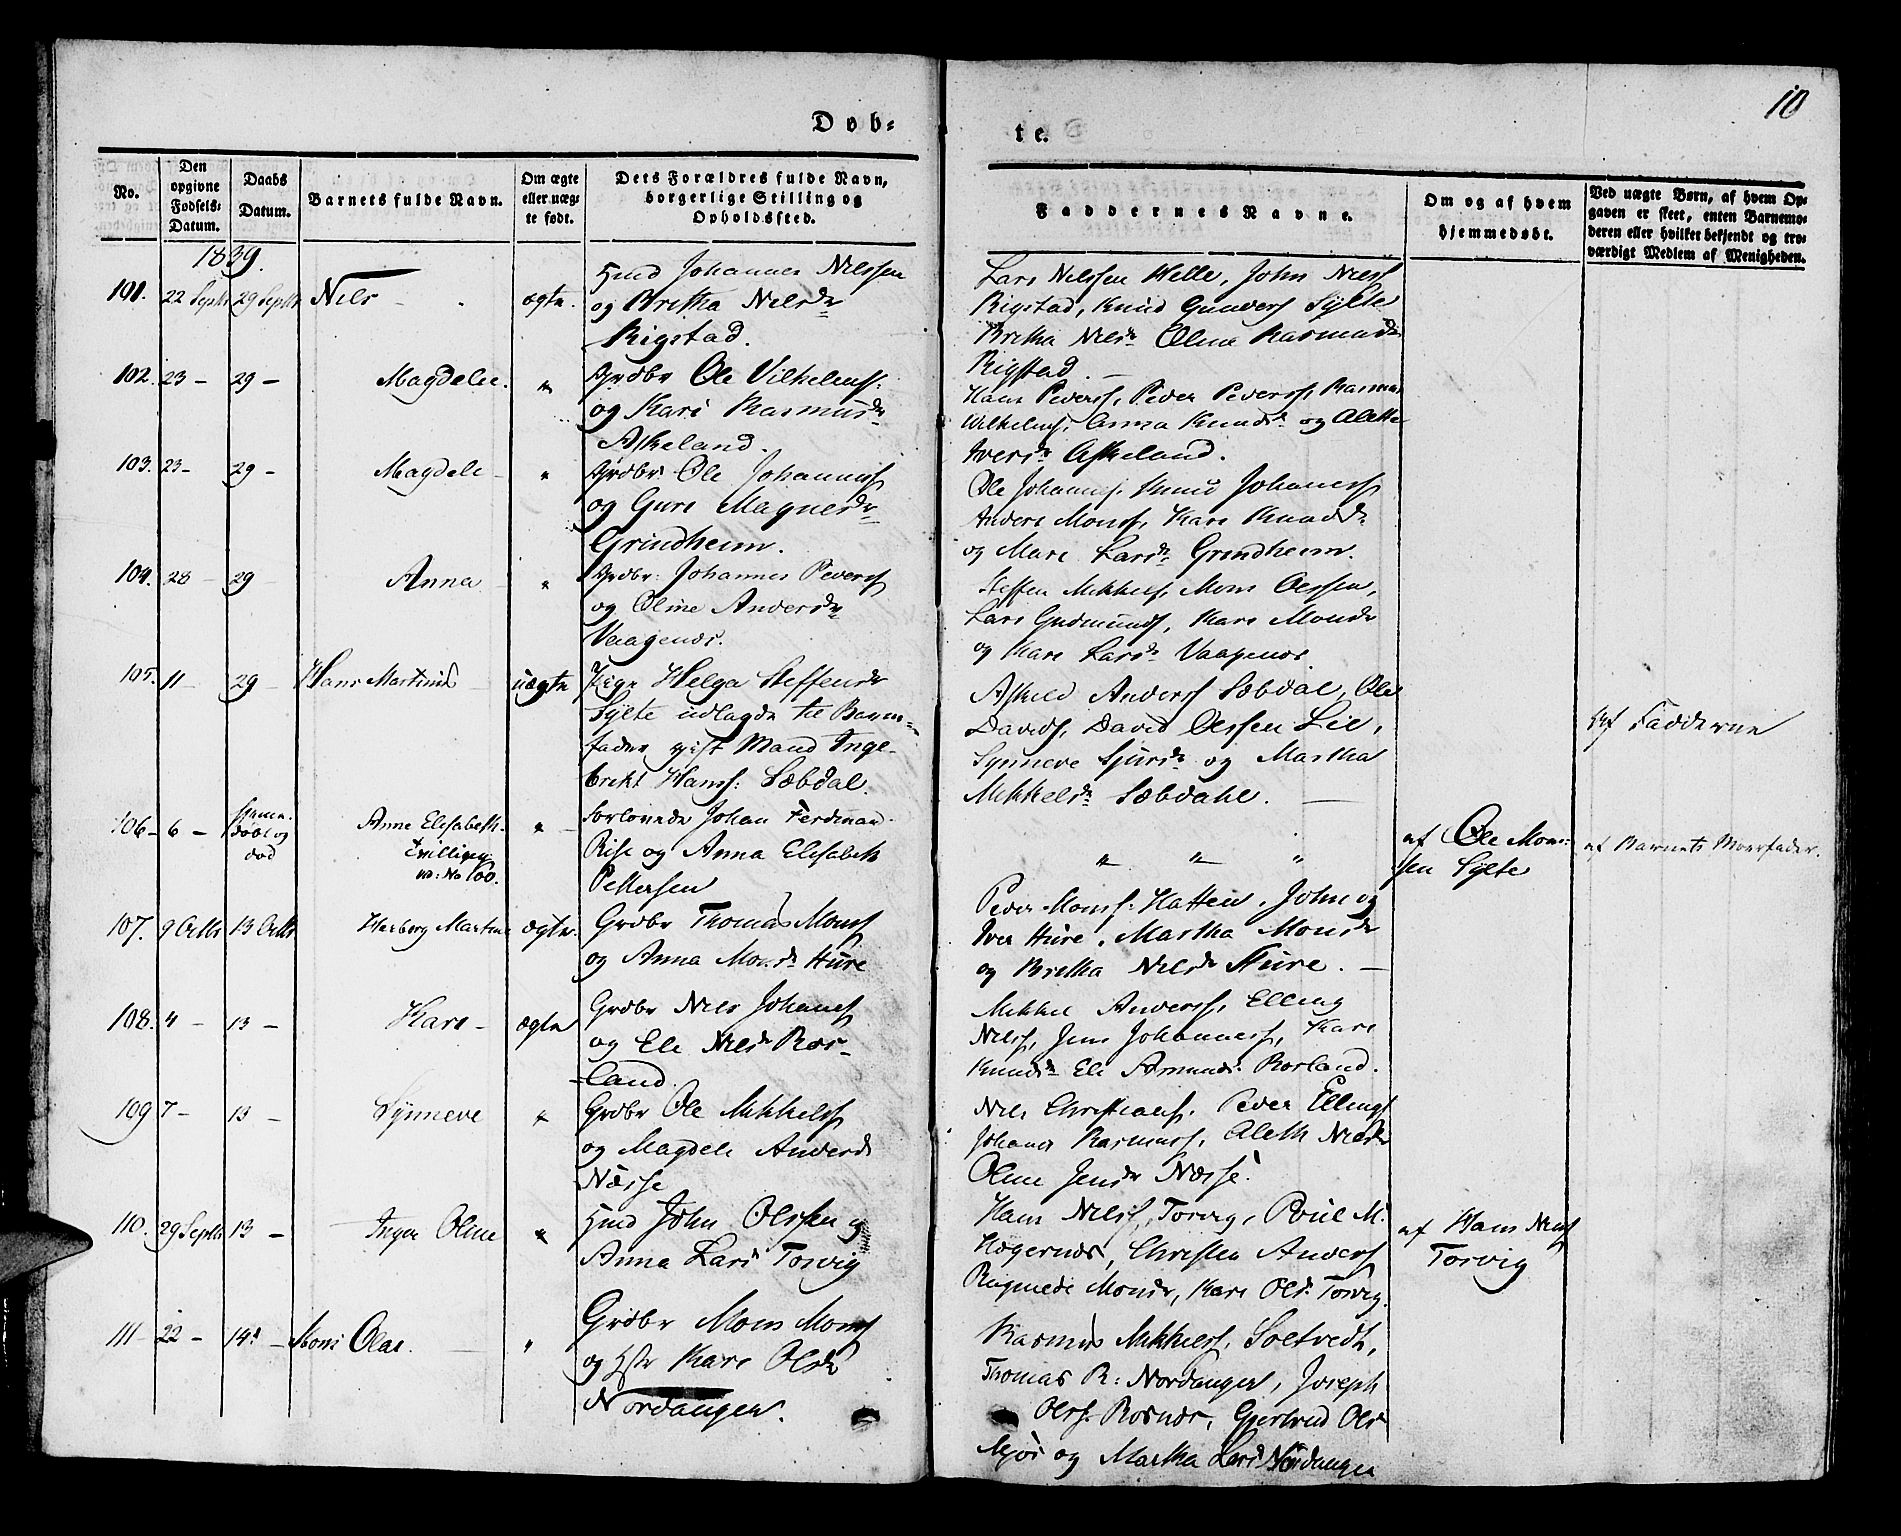 Døb-
te.
10
No.
Den opgivne Fødsels-Datum.
Daabs Datum.
Barnets fulde Navn.
Om ægte eller uægte født.
Dets Forældres fulde Navn, borgerlige Stilling og Opholdssted.
Faddernes Navne.
Om og af hvem hjemmedøbt.
Ved uægte Børn, af hvem Opgaven er skeet, enten Barnemoderen eller hvilket bekjendt og troværdigt Medlem af Menigheden.
1839.
101. 22 Septb 29 Septb Nils ægte.
Hmd Johannes Nilssen
og Britha Nilsdr
Rigstad.
Lars Nilssen Helle, John Nilss
Rigstad, Knud Gunders Sylte
Britha Nilsdr Oline Rasmusdr
Rigstad.
102. 23 – 29 – Magdele. "
Grdbr Ole Vilhelms:
og Kari Rasmusdr
Askeland.
Hans Peders, Peder Peders, Rasmus
Vilhelms, Anna Knudsdr og Alette
Iversdr Askeland.
103. 23 – 29 – Magdele – "
Grdbr Ole Johanness
og Guri Magnesdr
Grindheim.
Ole Johanness, Knud Johaness
Anders Monss, Kari Knudsdr
og Mari Larsdr Grindheim.
104. 28 – 29 Anna "
Grdbr: Johannes Peders
og Oline Andersdr
Vaagenæs.
Steffen Mikkels, Mons Olssen,
Lars Gudmunds, Kari Monsdr
og Kari Larsdr Vaagenæs.
105. 11 – 29 – Hans Martinus uægte
Pige Helga Steffensdr
Sylte udlagde til Barne-
fader gift Mand Inge-
brikt Hanss: Sæbdal.
Askild Anderss Sæbdal, Ole
Davids, David Olssen Lie,
Synneve Sjursdr og Martha
Mikkelsdr Sæbdahl.
Af Fadderne
106 – 6 – hjemme-
døbt og
død
Anne Elisabeth. "
Tvilling
v: No 100.
Forlovede Johan Ferdinan-
Rise og Anna Elisabeth
Pettersen
" " "
af Ole Mons-
sen Sylte
af Barnets Moerfader.
107. 9 Octbr 13 Octbr Herborg Martine ægte.
Grdbr Thomas Monss
og Anna Monsdr Hüre
Peder Monss: Hatten, John og
Iver Hüre, Martha Monsdr
og Britha Nilsdr Hüre.
108. 4 – 13 – Kari – ægte
Grdbr Nils Johaness
og Eli Nilsdr Røs-
land.
Mikkel Anderss, Elling
Nilss, Jens Johanness, Kari
Knudsdr Eli Amunds.
109 7 – 13 – Synneve "
Grdbr Ole Mikkelss
og Magdeli Andersdr
Næsse
Nils Christians, Peder Ellings
Johanes Rasmuss, Aleth Nilsdr
Oline Jensdr Næsse.
110. 29 Septb 13 – Inger Oline "
Hmd John Olssen og
Anna Lars Torvig
Hans Nilss, Torvig, Poul M.
Høgernæs, Christen Anderss
Ragnilde Monsdr, Kari Olsdr Torvig.
af Hans Nilss
Torvig
111 – 22 – 14. – Mons Olai. "
Grdbr Mons Monss
og Hstr Kari Olsdr
Nordanger.
Rasmus Mikkelss, Soltvedt,
Thomas R: Nordanger, Joseph
Olss. Rosnæs, Gjertrud Olsdr
Mjøs og Martha Larsdr Nordanger